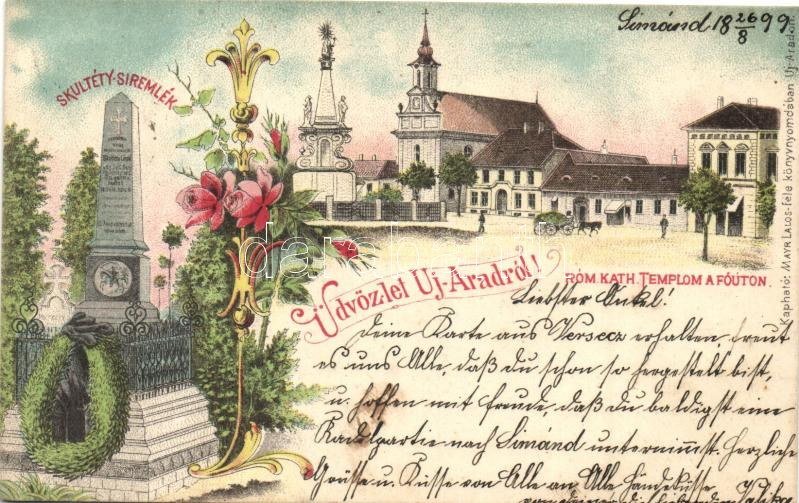 Simánd 18 26/8 99
SKULTÉTY-SIREMLÉK
Üdvözlet Uj-Aradról!
RÓM. KATH. TEMPLOM A FŐUTON.
Kapható: MAYR LAJOS-féle könyvnyomdában Uj-Aradon.
Liebster Onkel!
Deine Karte aus Versecz erhalten, freut
es uns Alle, daß du schon so hergestellt bist,
u. hoffen mit Freude, daß du baldigst eine
Radelpartie nach Simánd unternimmst. Herzliche
Grüsse u. Küsse von Alle an Alle Händeküsse
darabanth